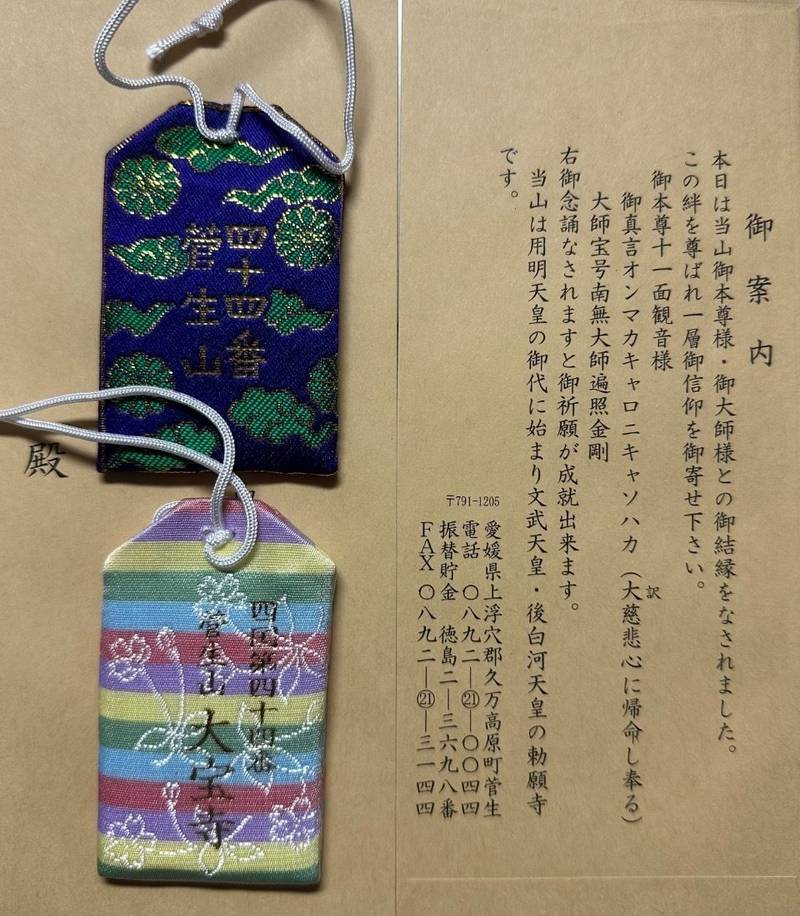 御案内
本日は当山御本尊様・御大師様との御結縁をなされました。
この絆を尊ばれ一層御信仰を御寄せ下さい。
御本尊十一面観音様
御真言オンマカキャロニキャソハカ（大慈悲心に帰命し奉る）
訳
大師宝号南無大師遍照金剛
右御念誦なされますと御祈願が成就出来ます。
当山は用明天皇の御代に始まり文武天皇・後白河天皇の勅願寺
です。
〒791-1205
愛媛県上浮穴郡久万高原町菅生
電話 〇八九二―㉑―〇〇四四
振替貯金 徳島二―三六九八番
ＦＡＸ 〇八九二―㉑―三一四四
四十四番
菅生山
四国第四十四番
菅生山 大宝寺
殿